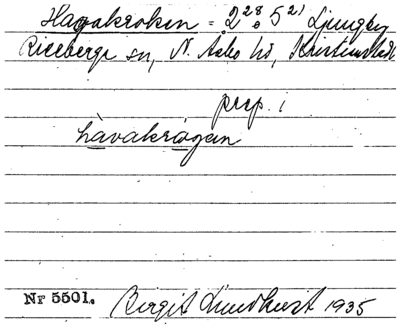 Havakroken = 2²⁸ o 5²¹ Ljungby
Riseberga sn, N. Åsbo hd, Kristianstads
prep. i
hàvakrógan
Nr 5501. Birgit Lundkvist 1935